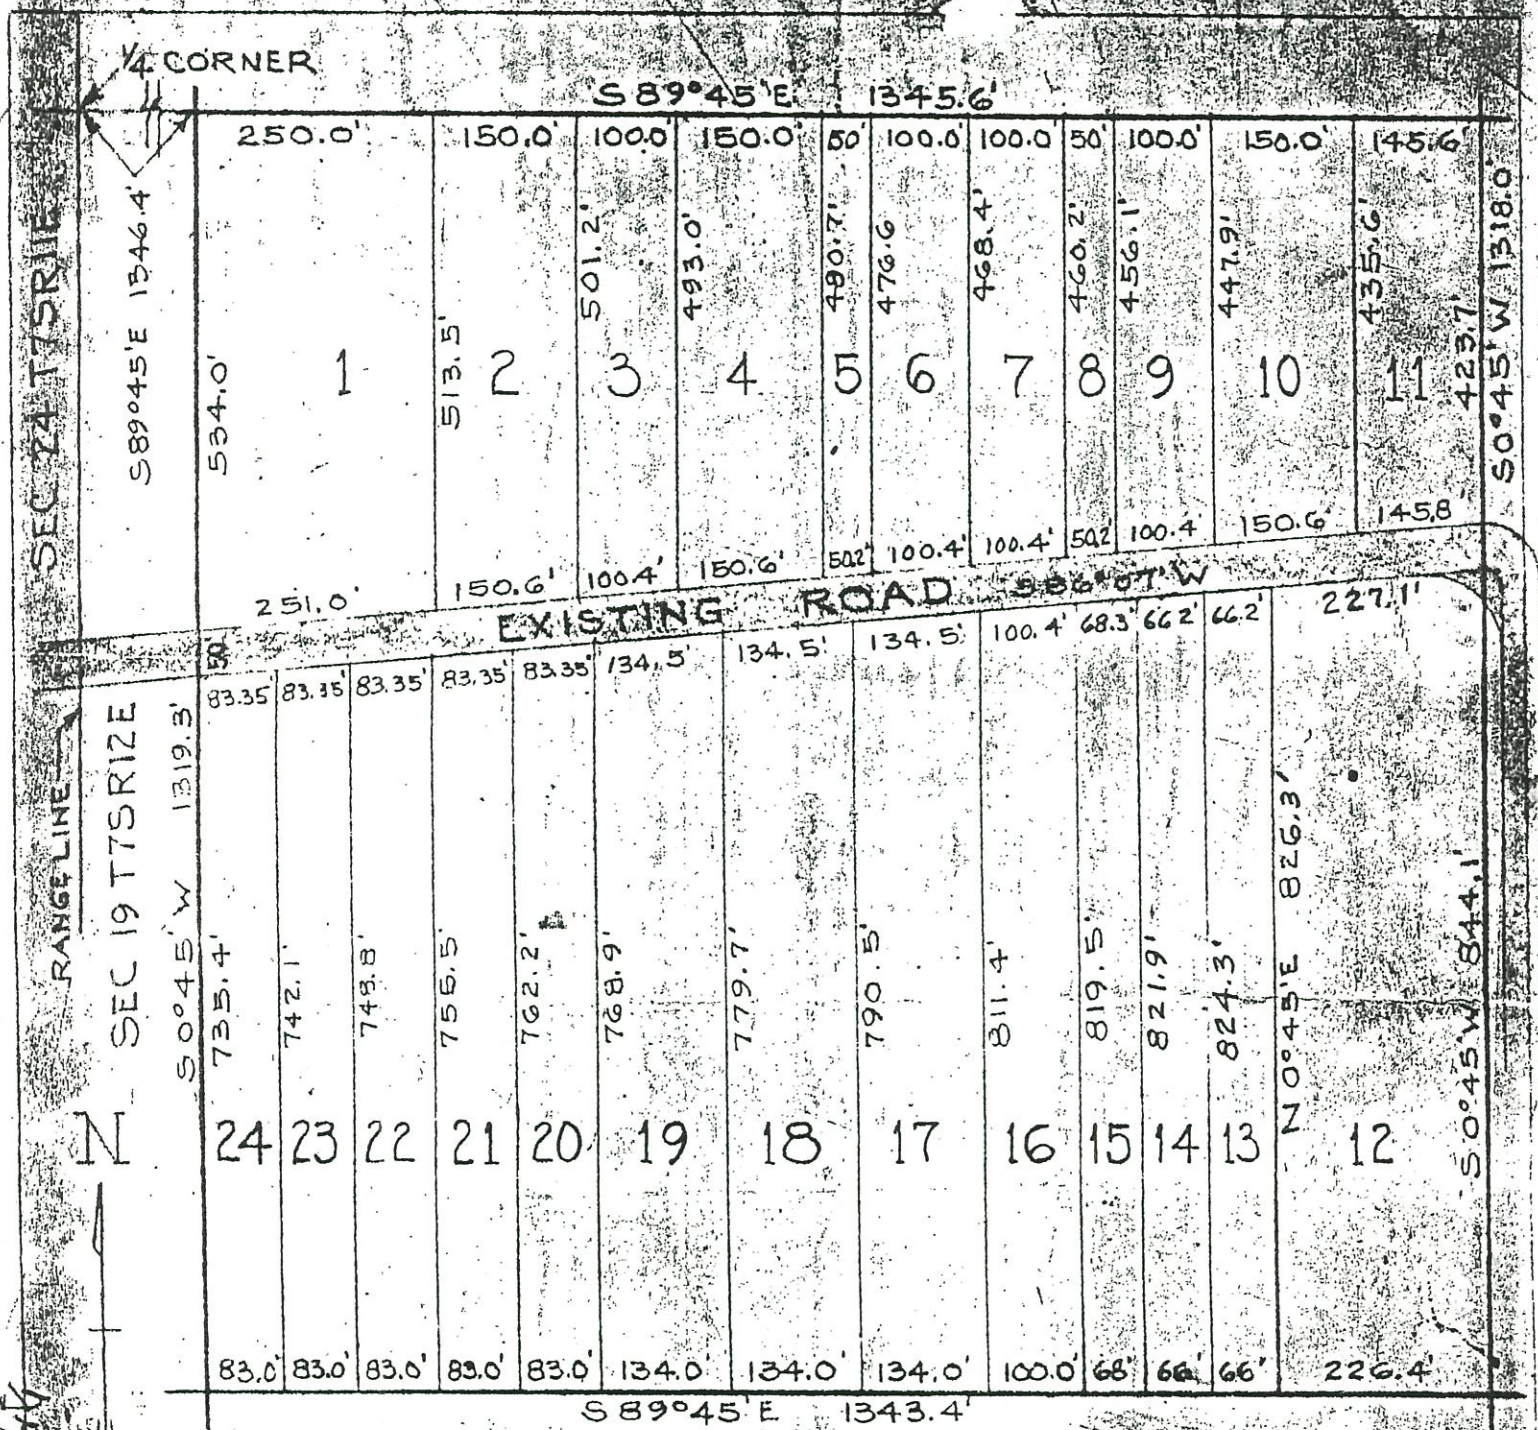 ¼ CORNER
S 89°45'E 1345.6'
250.0' 150.0' 100.0' 150.0' 50' 100.0' 100.0' 50' 100.0' 150.0' 145.6'
SEC 24 T7SR1E
S89°45'E 1346.4'
534.0' 513.5' 501.2' 493.0' 480.7' 476.6 468.4' 460.2' 456.1' 447.9' 435.6' 423.7'
S0°45'W 1318.0'
1 2 3 4 5 6 7 8 9 10 11
251.0' 150.6' 100.4' 150.6' 50.2' 100.4' 100.4' 50.2' 100.4' 150.6' 145.8'
EXISTING ROAD S86°07'W
50'
83.35 83.35' 83.35' 83.35' 83.35' 134.5' 134.5' 134.5' 100.4' 68.3' 66.2' 66.2' 227.1'
RANGE LINE
SEC 19 T7SR12E
S0°45'W 1319.3'
735.4' 742.1' 748.8' 755.5' 762.2' 768.9' 779.7' 790.5' 811.4' 819.5' 821.9' 824.3'
N0°45'E 826.3'
S0°45'W 844.1'
N
24 23 22 21 20 19 18 17 16 15 14 13 12
83.0' 83.0' 83.0' 83.0' 83.0' 134.0' 134.0' 134.0' 100.0' 68' 66' 66' 226.4'
S 89°45'E 1343.4'